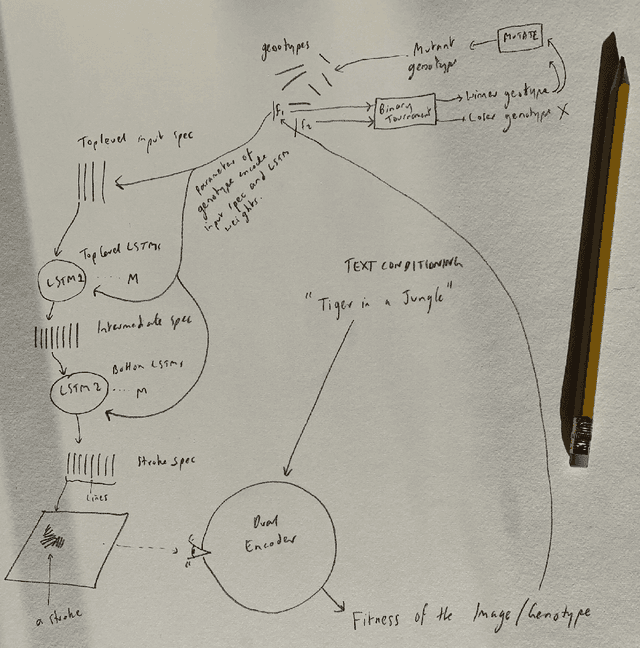 genotypes
Mutant
genotype
MUTATE
f1
f2
Binary
Tournament
Winner geotype
Loser genotype X
Toplevel input spec
Parameter of
genotype encode
input spec and LSTM
weights.
Top Level LSTMs
LSTM1 .... M
Intermediate spec
Bottom LSTMs
LSTM2 ... M
Stroke spec
Lines
a stroke
TEXT CONDITIONING
"Tiger in a Jungle"
Dual
Encoder
Fitness of the Image/Genotype